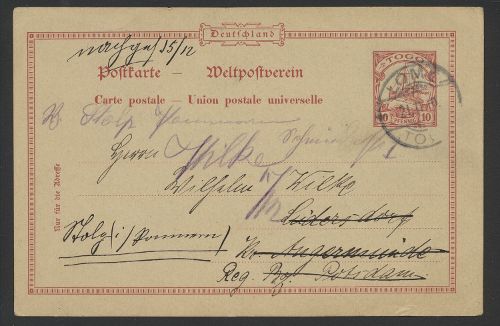 Deutschland
nachges. 15/12
TOGO
Postkarte – Weltpostverein
Carte postale – Union postale universelle
LOME
10 PFENNIG 10
Stolp Pommern
Herrn
Wilke
Wilhelm Wilke
Nur für die Adresse
Lüdersdorf
Stolp i/Pommern
Kr. Angermünde
Reg. Bz. Potsdam